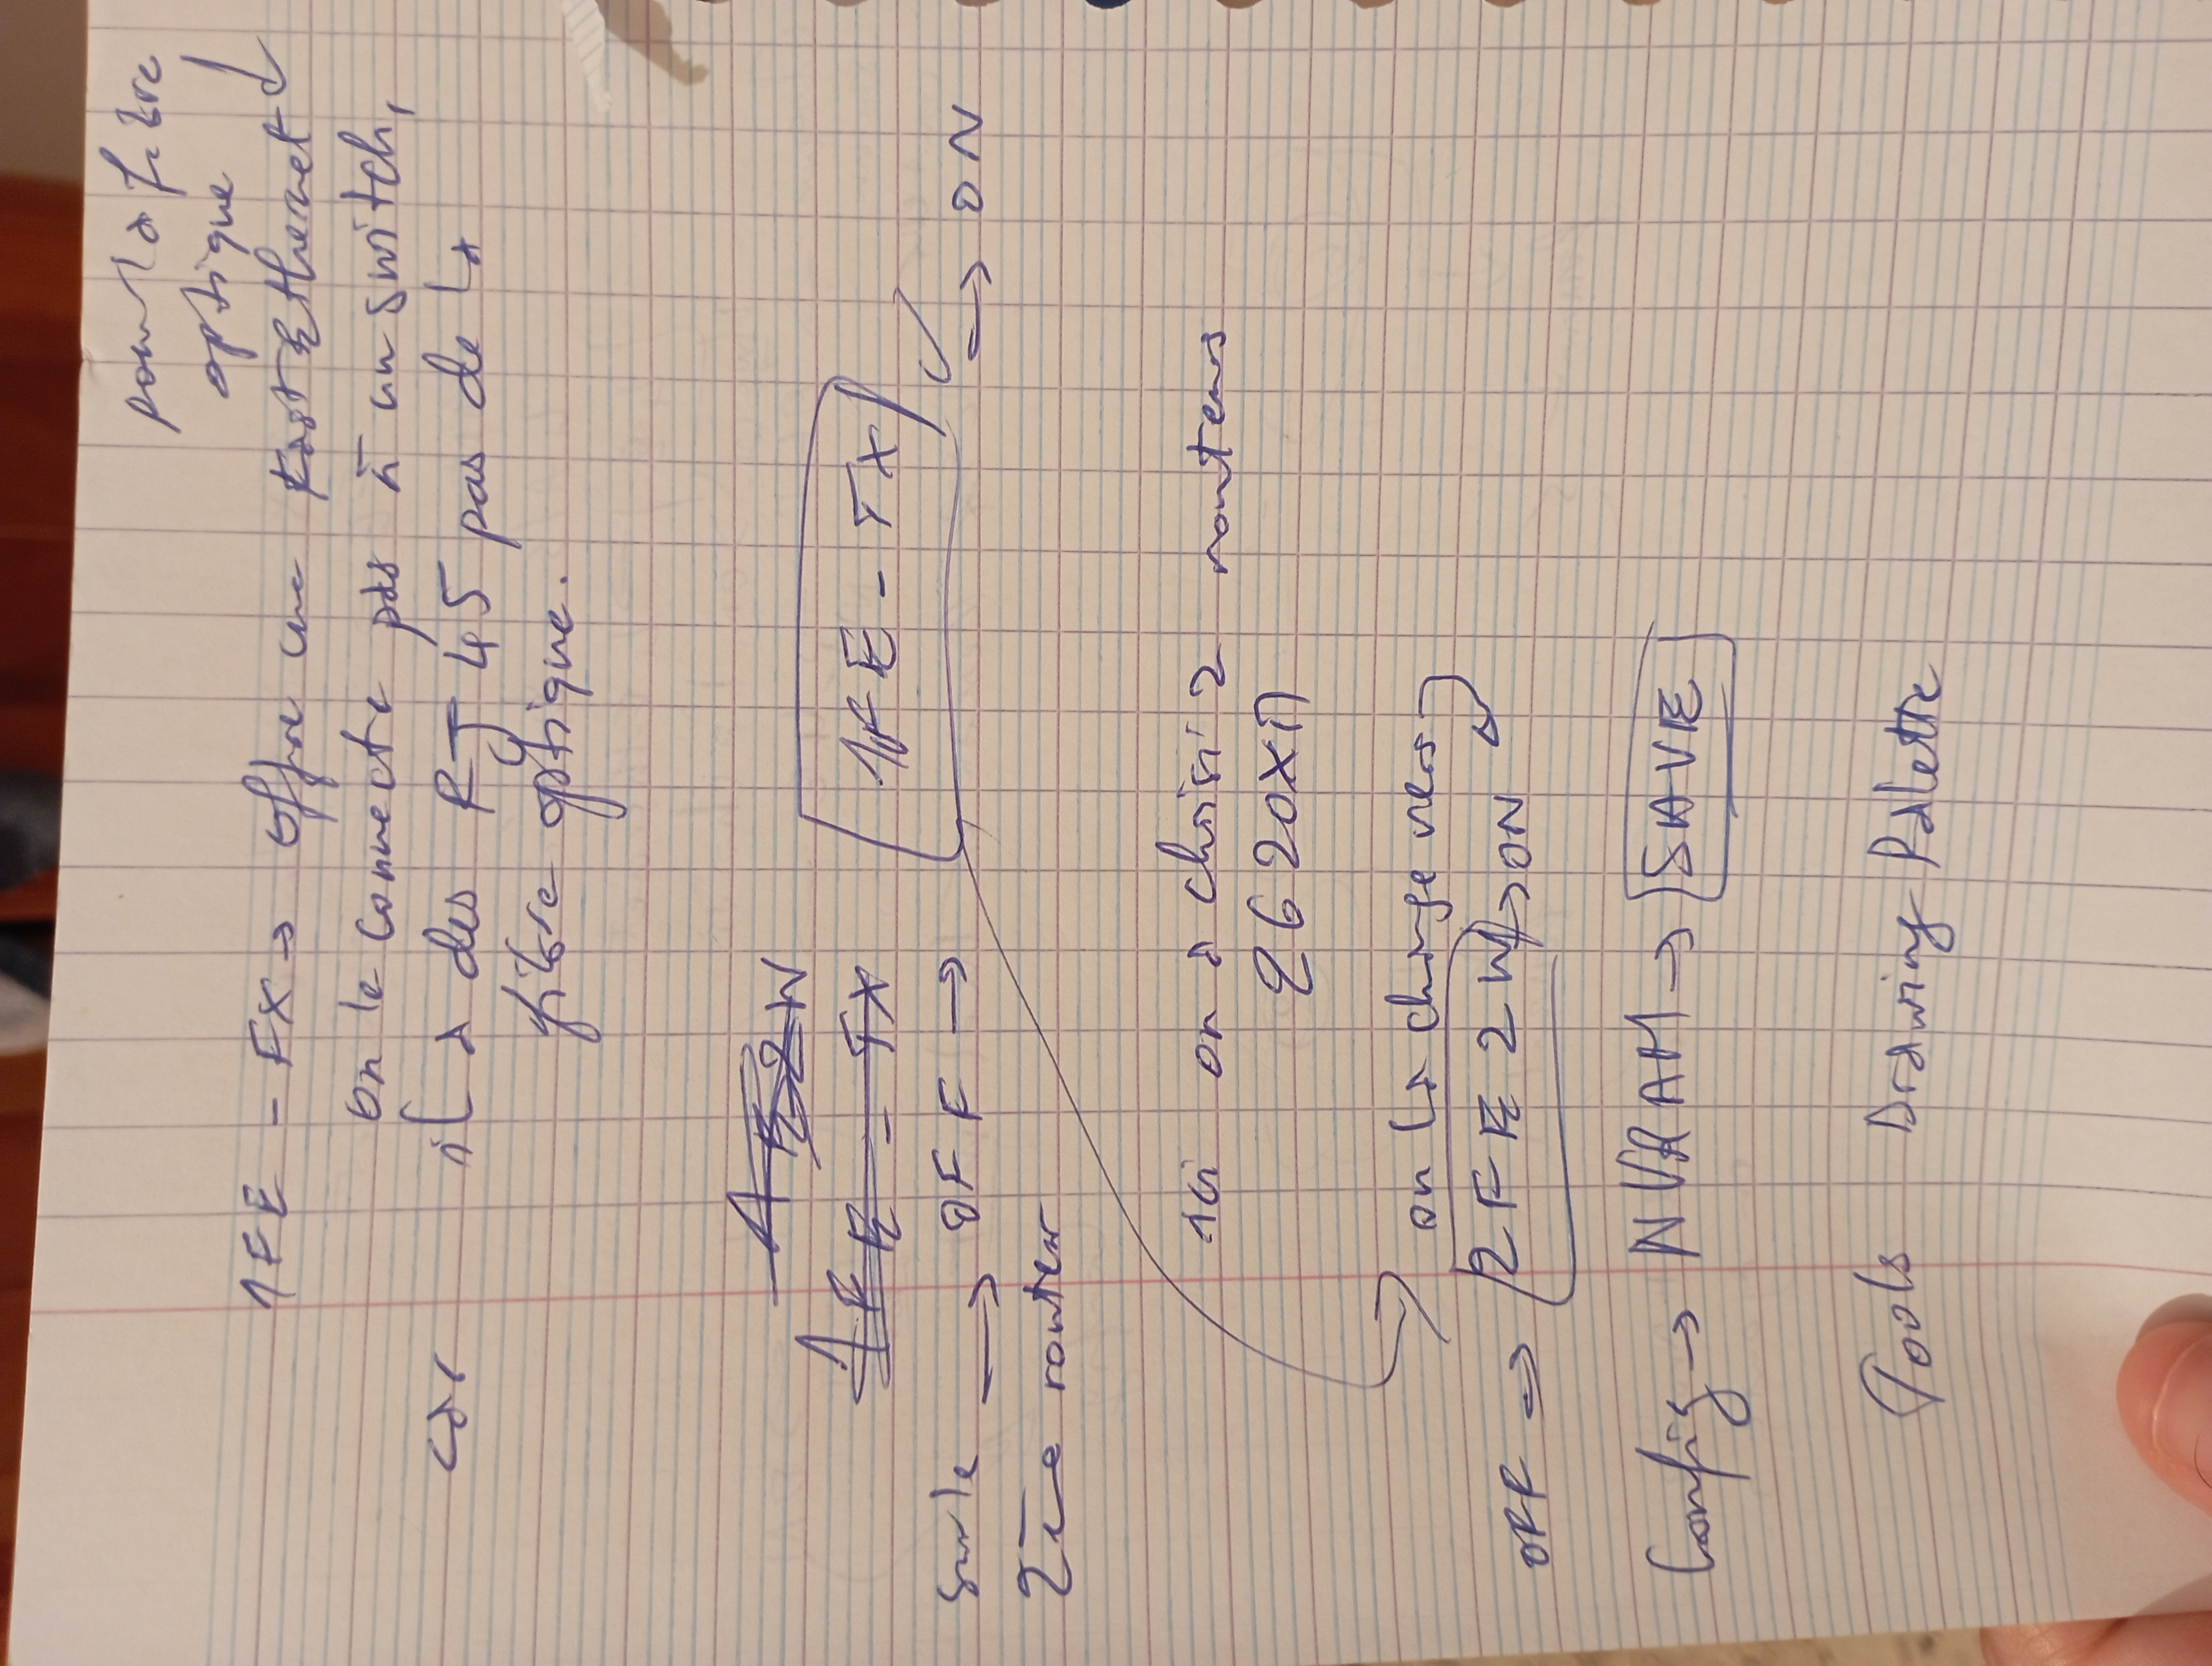 pour la fibre
optique
1FE - FX → offre une Fast Ethernet
on le connecte pas à un switch,
car il a des RJ45 pas de la
fibre optique.
1FE - TX
1FE - TX
sur le → OFF → → ON
2ème routeur
ici on a choisi 2 routeurs
2620XM
on la change vers
OFF → 2FE2W → ON
Config → NVRAM → SAVE
Tools Drawing Palette